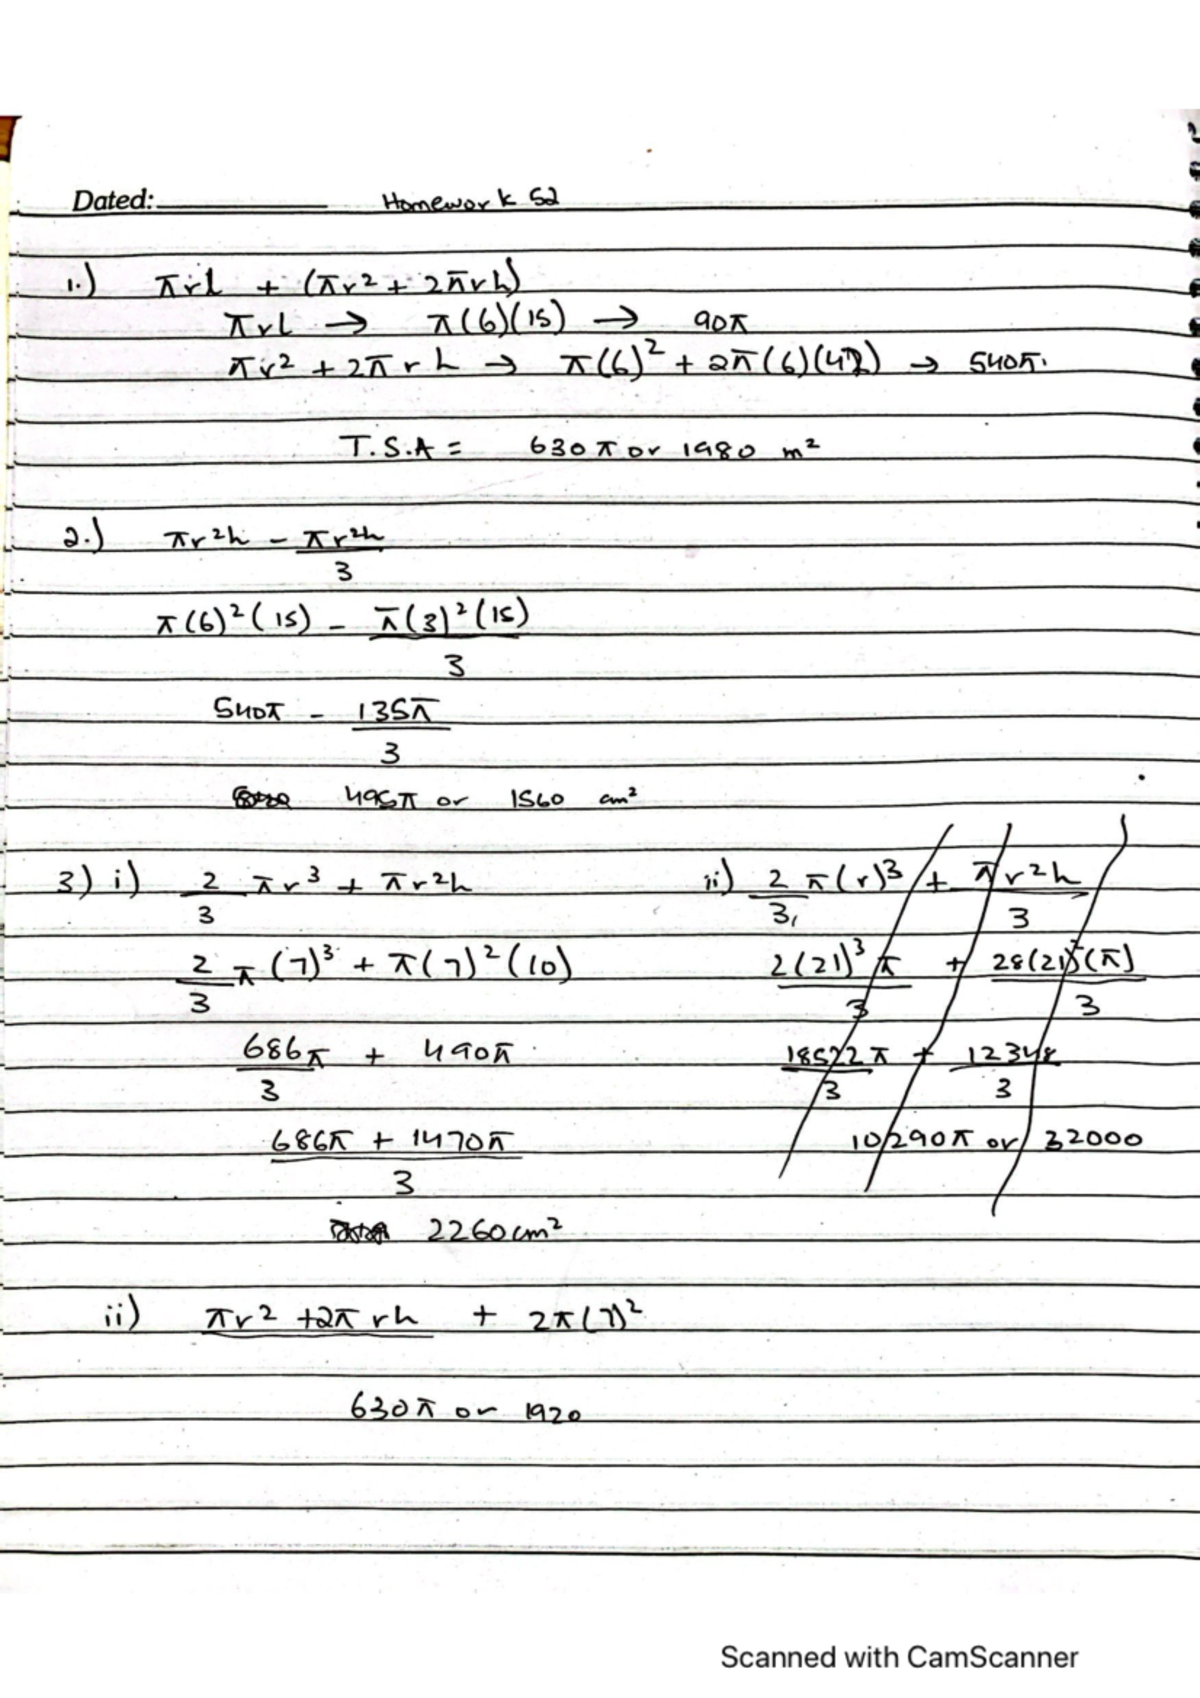 Dated: Homework 52
1.) πrl + (πr² + 2πrh)
πrl → π(6)(15) → 90π
πr² + 2πrh → π(6)² + 2π(6)(42) → 540π.
T.S.A = 630π or 1980 m²
2.) πr²h - πr²h/3
π(6)²(15) - π(3)²(15)/3
540π - 135π/3
495π or 1560 cm²
3) i) 2/3 πr³ + πr²h
2/3 π(7)³ + π(7)²(10)
686π/3 + 490π
686π + 1470π/3
2260cm²
ii) 2/3 π(r)³ + πr²h/3
2(21)³π/3 + 28(21)²(π)/3
18522π/3 + 12348/3
10290π or 32000
ii) πr² +2πrh + 2π(7)²
630π or 1920
Scanned with CamScanner